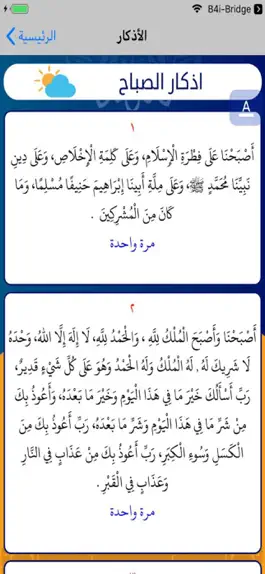 B4i-Bridge
الأذكار
الرئيسية
اذكار الصباح
A
١
أَصْبَحْنَا عَلَى فِطْرَةِ الْإِسْلَامِ، وَعَلَى كَلِمَةِ الْإِخْلَاصِ، وَعَلَى دِينِ
نَبِيِّنَا مُحَمَّدٍ ﷺ، وَعَلَى مِلَّةِ أَبِينَا إِبْرَاهِيمَ حَنِيفًا مُسْلِمًا، وَمَا
كَانَ مِنَ الْمُشْرِكِينَ .
مرة واحدة
٢
أَصْبَحْنَا وَأَصْبَحَ الْمُلْكُ لِلَّهِ ، وَالْحَمْدُ لِلَّهِ، لَا إِلَهَ إِلَّا اللهُ، وَحْدَهُ
لَا شَرِيكَ لَهُ , لَهُ الْمُلْكُ وَلَهُ الْحَمْدُ وَهُوَ عَلَى كُلِّ شَيْءٍ قَدِيرٌ،
رَبِّ أَسْأَلُكَ خَيْرَ مَا فِي هَذَا الْيَوْمِ وَخَيْرَ مَا بَعْدَهُ، وَأَعُوذُ بِكَ
مِنْ شَرِّ مَا فِي هَذَا الْيَوْمِ وَشَرِّ مَا بَعْدَهُ، رَبِّ أَعُوذُ بِكَ مِنَ
الْكَسَلِ وَسُوءِ الْكِبَرِ، رَبِّ أَعُوذُ بِكَ مِنْ عَذَابٍ فِي النَّارِ
وَعَذَابٍ فِي الْقَبْرِ .
مرة واحدة